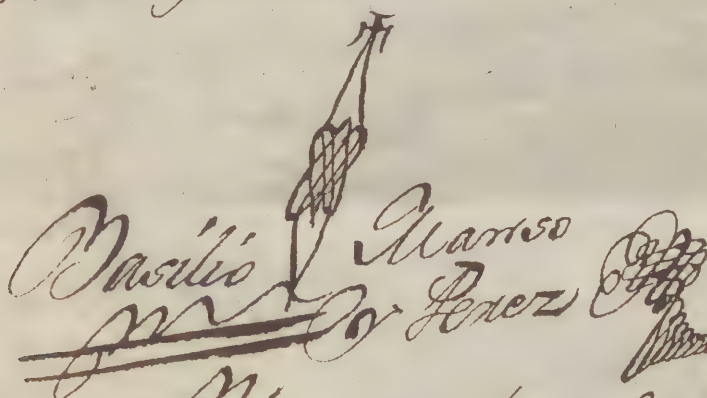 Basilio Manso
y Perez